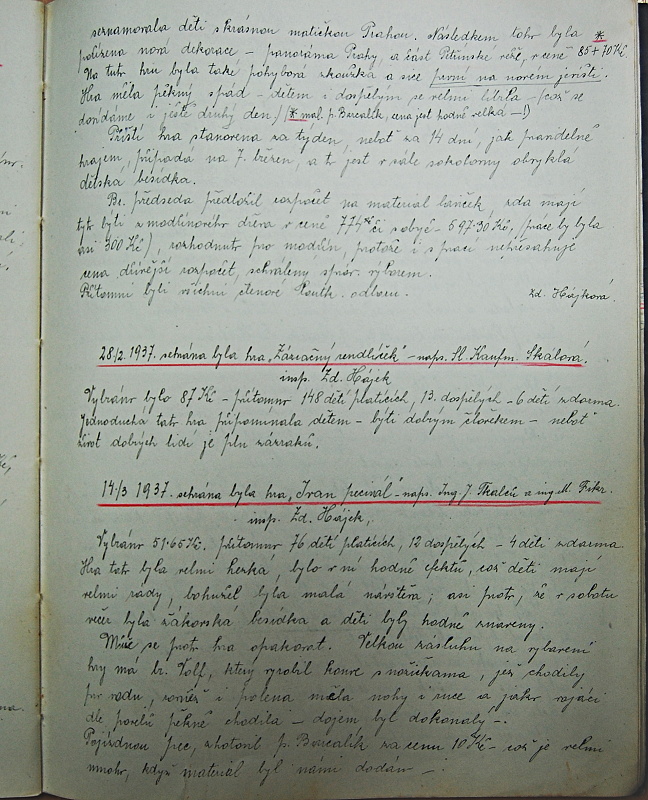 seznamovala děti s krásnou matičkou Prahou. Následkem toho byla *
pořízena nová dekorace – panoráma Prahy, a část Petřínské věže, v ceně 85 + 70 Kč
Na tuto hru byla také pohybová zkouška a sice první na novém jevišti.
Hra měla pěkný spád – dětem i dospělým se velmi líbila – (což se
dovídáme i ještě druhý den.) (* mal. p. Borcalík, cena jest hodně velká –!)
Příští hra stanovena za týden, neboť za 14 dní, jak pravidelně
hrajem, připadá na 7. březen, a to jest v sále sokolovny obvyklá
dětská besídka.
Br. předseda předložil rozpočet na material laviček, zda mají
tyto býti z modřínového dřeva v ceně 774 Kč či sobyč – 597·30 Kč, (práce by byla
asi 300 Kč), rozhodnuto pro modřín, protože i s prací nepřesahuje
cena dřívější rozpočet, schválený správ. výborem.
Přítomni byli všichni členové loutk. odboru. Zd. Hájková.
28/2. 1937. sehrána byla hra „Zázračný rendlíček“ – naps. Sl. Kaufm. Skálová.
insp. Zd. Hájek
Vybráno bylo 87 Kč – přítomno 148 dětí platících, 13. dospělých – 6 dětí zdarma.
Jednoduchá tato hra připomínala dětem – býti dobrým člověkem – neboť
život dobrých lidí je pln zázraků.
14/3 1937. sehrána byla hra „Ivan pecivál“ – naps. Ing. J. Tkalců a ing. M. Frikr.
insp. Zd. Hájek,
Vybráno 51·65 Kč. přítomno 76 dětí platících, 12 dospělých – 4 děti zdarma.
Hra tato byla velmi hezká, bylo v ní hodně efektů, což děti mají
velmi rády, bohužel byla malá návštěva; asi proto, že v sobotu
večer byla žákovská besídka a děti byly hodně znaveny.
Může se proto hra opakovat. Velkou zásluhu na vybavení
hry má br. Volf, který vyrobil konve s nožičkama, jež chodily
pro vodu, rovněž i polena měla nohy i ruce a jako vojáci
dle povelů pěkně chodila – dojem byl dokonalý –.
Pojízdnou pec, zhotovil p. Borcalík za cenu 10 Kč – což je velmi
mnoho, když materiál byl námi dodán –.